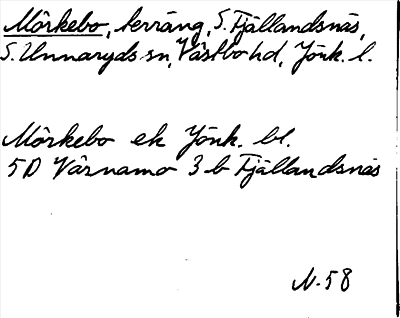 Mörkebo, terräng, S. Fjällandsnäs,
S. Unnaryds sn, Västbo hd, Jönk. l.
Mörkebo ek Jönk. bl.
5D Värnamo 3 b Fjällandsnäs
N-58